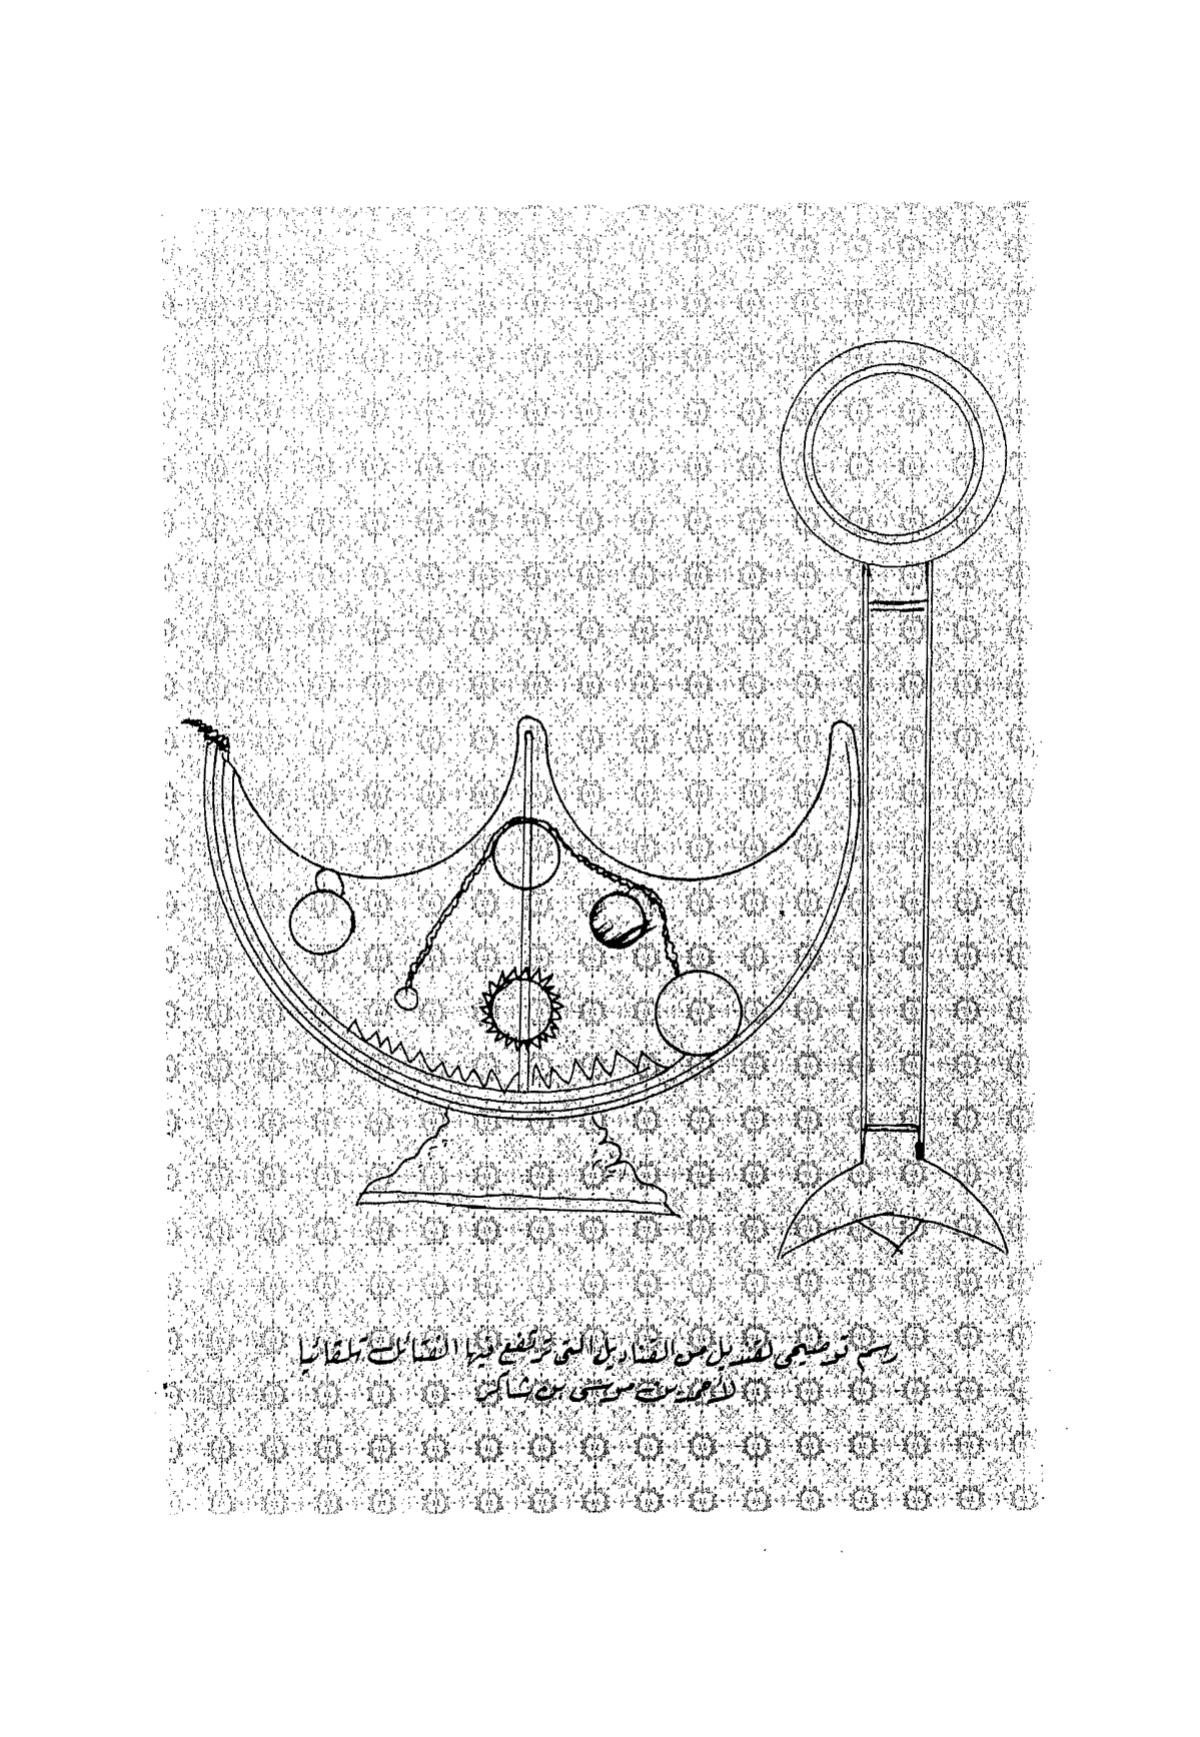 رسم توضيحى لقنديل من القناديل التى ترتفع فيها الفتائل تلقائيا
لأحمد بن موسى بن شاكر